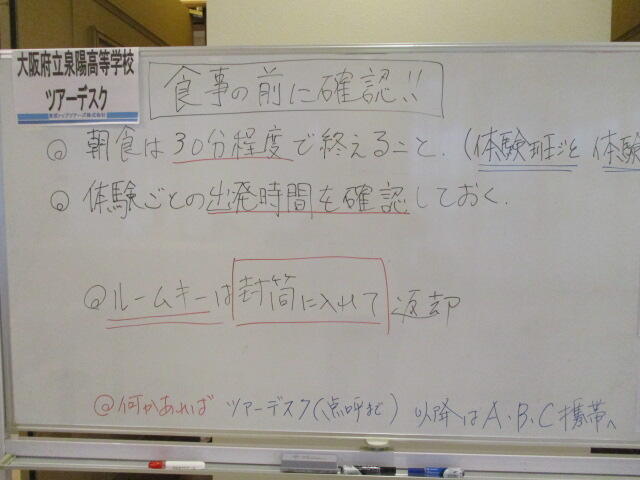 大阪府立泉陽高等学校
ツアーデスク
食事の前に確認!!
◎ 朝食は30分程度で終えること. (体験班ごと 体験
◎ 体験ごとの出発時間を確認しておく.
◎ルームキーは封筒に入れて返却
◎何かあれば ツアーデスク(点呼まで) 以降はA.B.C携帯へ